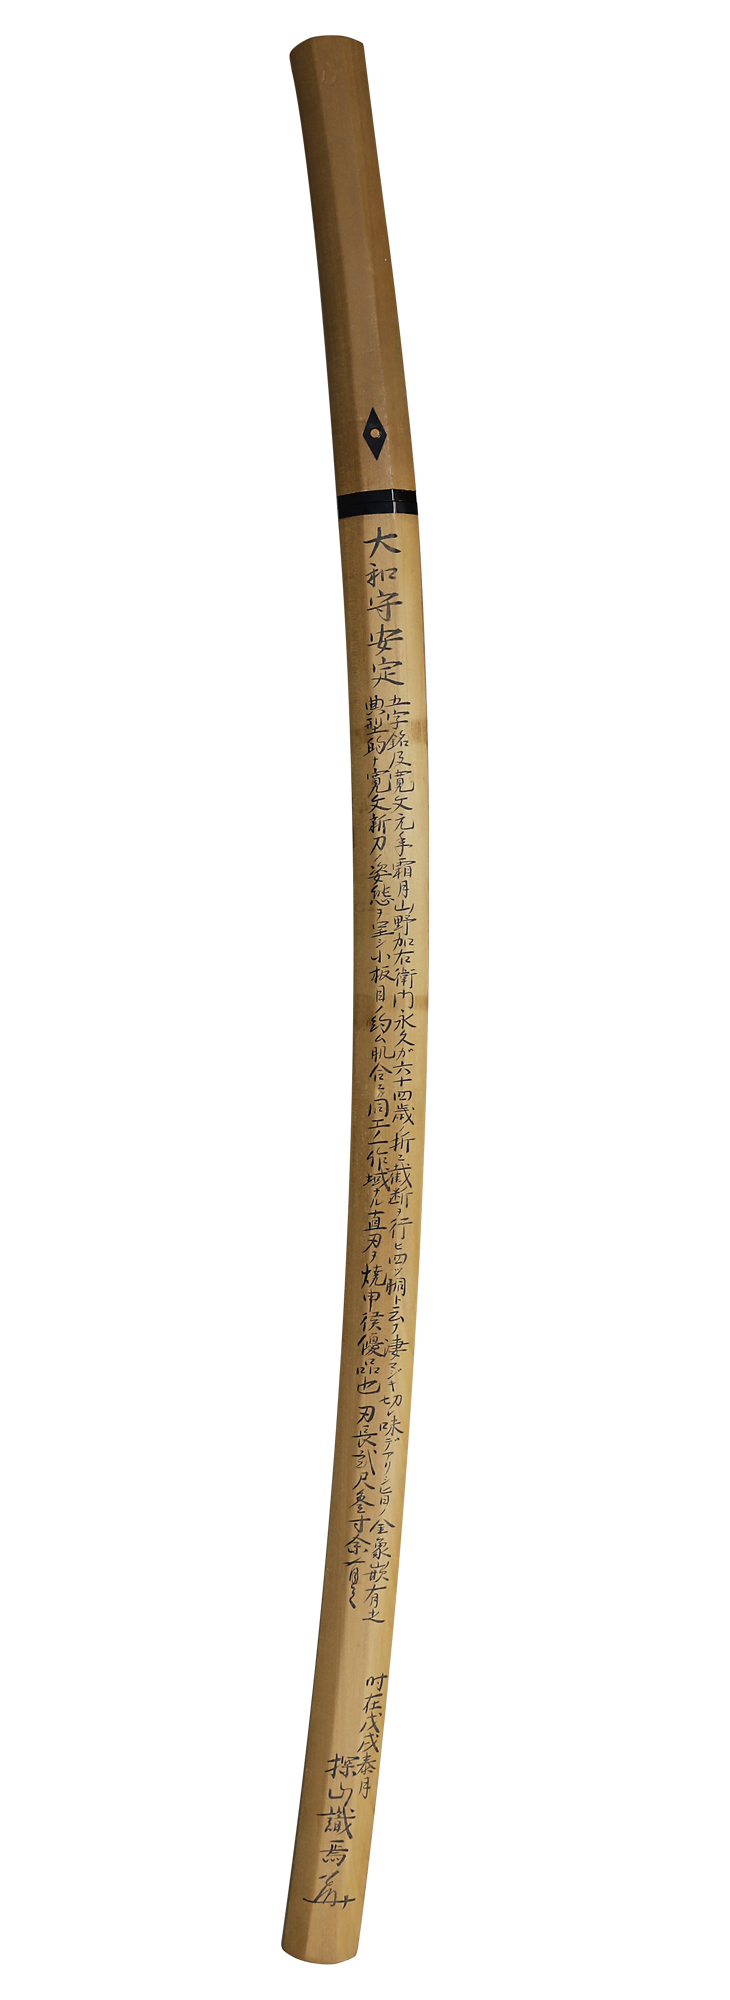 大和守安定
五字銘及寛文元年霜月山野加右衛門永久が六十四歳ノ折ニ截断ヲ行ヒ四ツ胴ト云フ凄マジキ切レ味デアリシ旨ノ金象嵌有之
典型的ナ寛文新刀ノ姿態ヲ呈シ小板目ノ約ム肌合等同工ノ一作域ナル直刃ヲ焼申候優品也 刃長弐尺参寸余有之
时在戊戌泰月
探山識焉